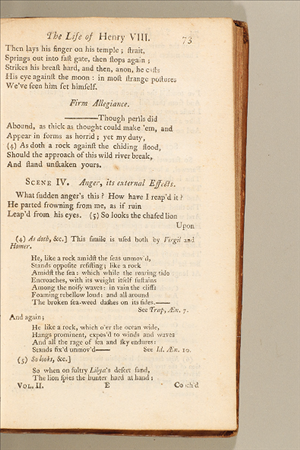 The Life of Henry VIII. 73
Then lays his finger on his temple ; ſtrait,
Springs out into faſt gate, then ſtops again ;
Strikes his breaſt hard, and then, anon, he caſts
His eye againſt the moon : in moſt ſtrange poſtures
We've ſeen him ſet himſelf.
Firm Allegiance.
———Though perils did
Abound, as thick as thought could make 'em, and
Appear in forms as horrid ; yet my duty,
(4) As doth a rock againſt the chiding flood,
Should the approach of this wild river break,
And ſtand unſhaken yours.
SCENE IV. Anger, its external Effects.
What ſudden anger's this ? How have I reap'd it ?
He parted frowning from me, as if ruin
Leap'd from his eyes. (5) So looks the chafed lion
Upon
(4) As doth, &c.] This ſimile is uſed both by Virgil and
Homer.
He, like a rock amidſt the ſeas unmov'd,
Stands oppoſite reſiſting ; like a rock
Amidſt the ſea : which while the roaring tide
Encroaches, with its weight itſelf ſuſtains
Among the noiſy waves : in vain the cliffs
Foaming rebellow loud : and all around
The broken ſea-weed daſhes on its ſides.——
See Trap, Æn. 7.
And again ;
He like a rock, which o'er the ocean wide,
Hangs prominent, expos'd to winds and waves
And all the rage of ſea and ſky endures:
Stands fix'd unmov'd—— See Id. Æn. 10.
(5) So looks, &c.]
So when on ſultry Libya's deſert ſand,
The lion ſpies the hunter hard at hand ;
VOL. II. E Couch'd